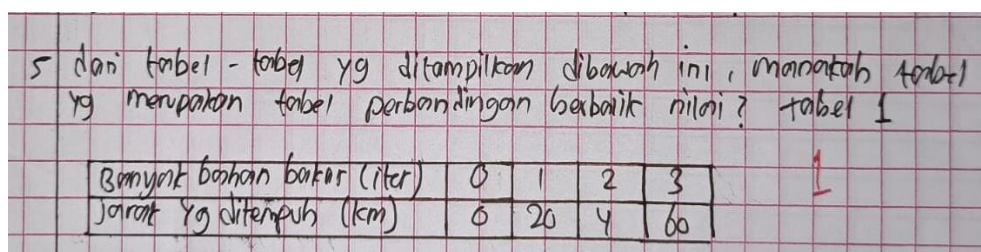 5 dari tabel - tabel yg ditampilkan dibawah ini, manakah tabel
yg merupakan tabel perbandingan berbalik nilai? tabel 1
1
Banyak bahan bakar (liter) 0 1 2 3
Jarak yg ditempuh (km) 0 20 4 60